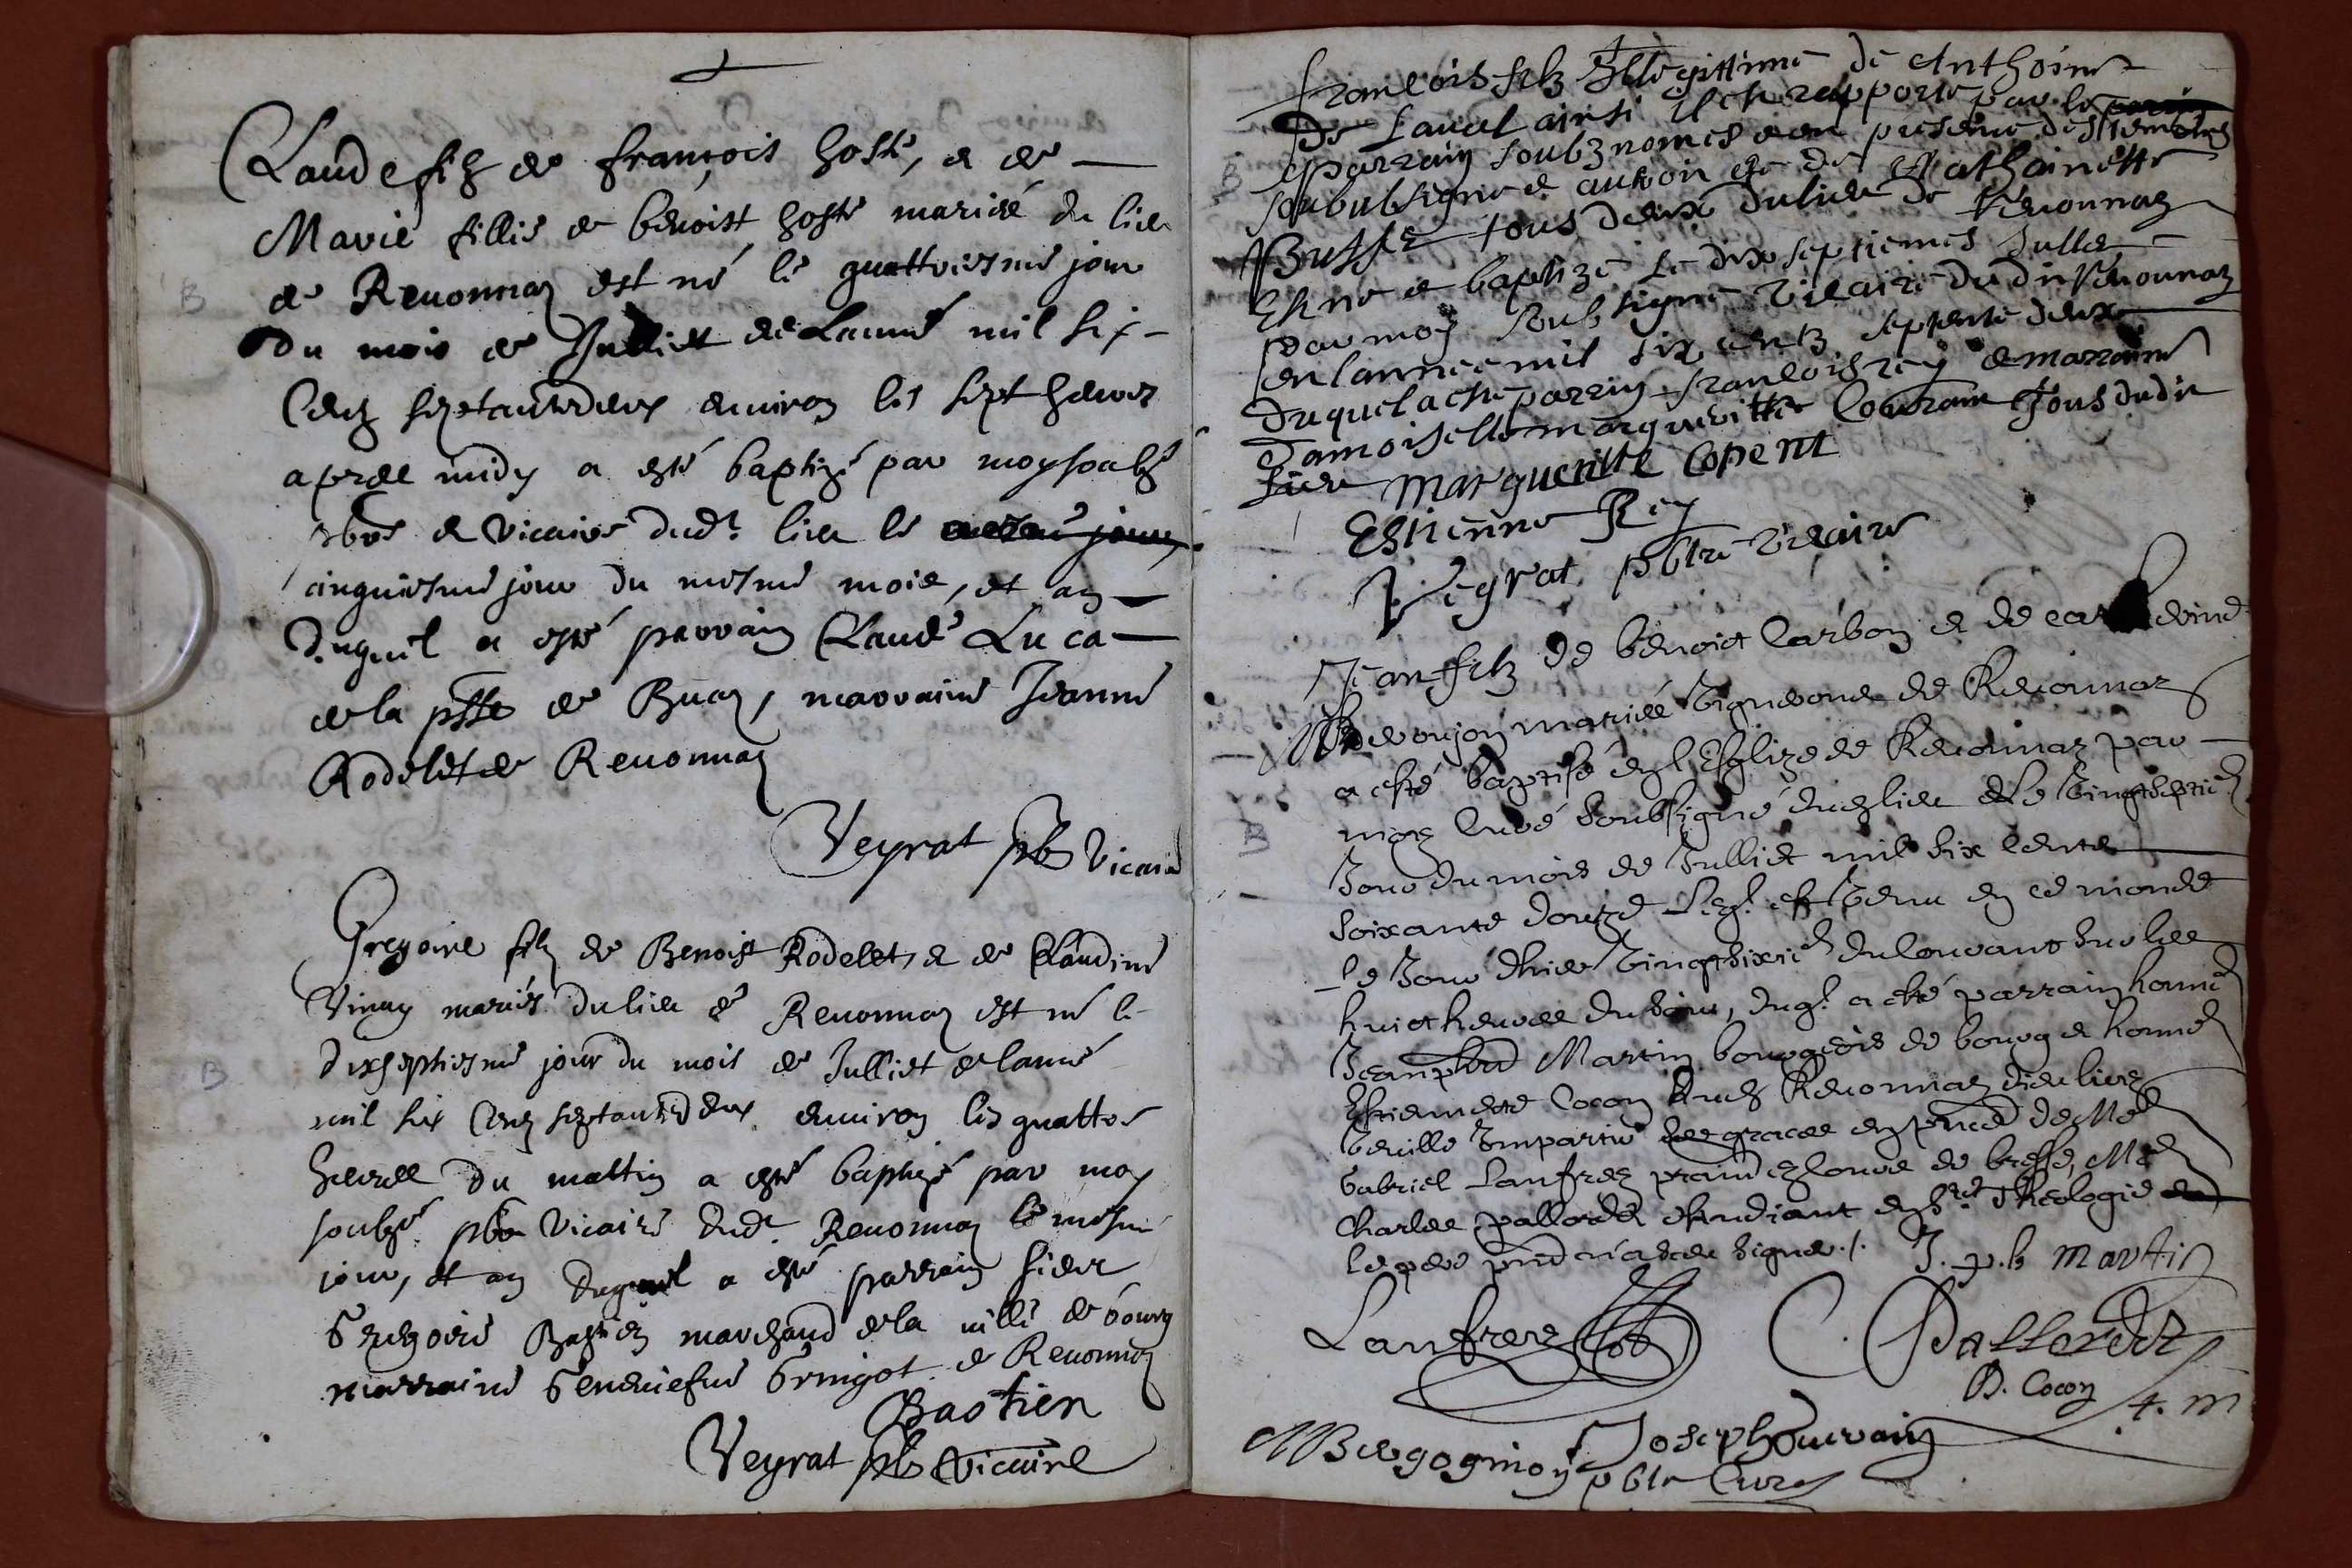 Claude filz de françois hoste, & de
Marie fillie de benoist hoste mariés du lieu
de Reuonnaz est né le quattriesme jour
du mois de Julliet de Lannée mil six
Centz septantedeux enuiron les sept heures
apres midy a esté baptizé par moy soubzé
pbre & vicaire dudt lieu le
cinquiesme jour du mesme mois, et an
duquel a esté parrain Claude Luca
de la psse de Buez, marraine Jeanne
Rodelet de Reuonnaz
Veyrat pbre vicaire
B
Gregoire filz de Benoist Rodelet, & de Claudine
Vinay mariés du lieu de Reuonnaz est né le
dixseptiesme jour du mois de Julliet de lanné
mil six Centz septantedeux enuiron les quattre
heures du mattin a esté baptizé par moy
soubzé pbre vicaire dudt Reuonnaz le mesme
jour, et an duquel a esté parrain sieur
Gregoire Bastien marchand de la ville de bourg
marraine Geneuiefue Gringot de Reuonnaz
B
Bastien
Veyrat pbre vicaire
francois filz Illegittime de Anthoine
De Laual ainsi Il est rapporté par le
parrain soubznomés & en presence des
soubsigne & aussi de Cathainette
Buffe tous deux du lieu de Reuonnaz
Est né & baptizé Le dix septiemes Jullet
par moy soubsigné vicaire du dit Reuonnaz
en lannee mil six centz septente deux
duquel a esté parrin francois rey & marraine
Damoiselle margueritte Couran tous dudit
Lieu margueritte Copent
Estienne Rey
Veyrat pbtre vicaire
B
Jean filz de benoict Carbon & de
mariés Vignerons de Reuonnaz
a esté baptisé en l'Esglize de Reuonnaz par
moy Curé soubsigné dudz lieu & le vingtseptie
Jour du mois de Julliet mil six cents
soixante douze Leql est venu en ce monde
Le Jour d'hier vingtsixie du Courant sur les
huict heures du soir, duql a esté parrain honne
Jeanphe Martin bourgeois de bourg & honne
Estiennette Cocon dudz Reuonnaz dieu luy
veuille Impartir ses graces en pnce de Me
Gabriel Lanfrey de bresse, Me
Charles palloreds estudiant en ste Theologie
le pere pnt n'a sceu signer ./. J. p. h martin
B
Lanfrey C. Pallorede
B. Cocon
M Bergognion Joseph
pbtr Curé